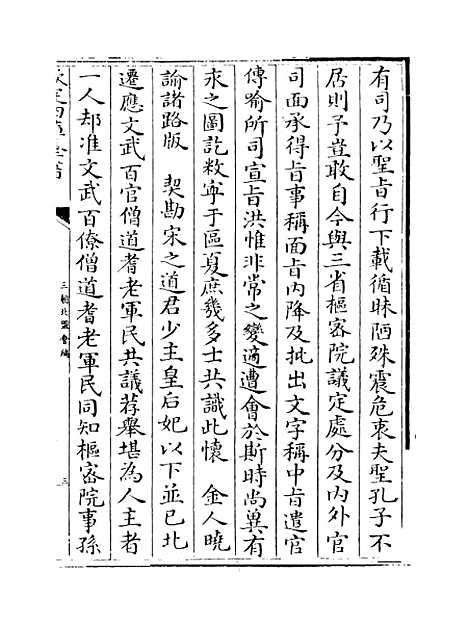 有司乃以聖旨行下載循昧陋殊震危衷夫聖孔子不
居則予豈敢自今與三省樞密院議定處分及內外官
司面承得旨事稱面旨內降及批出文字稱中旨遣官
傳喻所司宣旨洪惟非常之變適遭會於斯時尚冀有
求之圖訖敉寧于區夏庶幾多士共識此懷　金人曉
諭諸路版　契勘宋之道君少主皇后妃以下並已北
遷應文武百官僧道耆老軍民共議荐舉堪為人主者
一人却准文武百僚僧道耆老軍民同知樞密院事孫
欽定四庫全書
三朝北盟會編
三